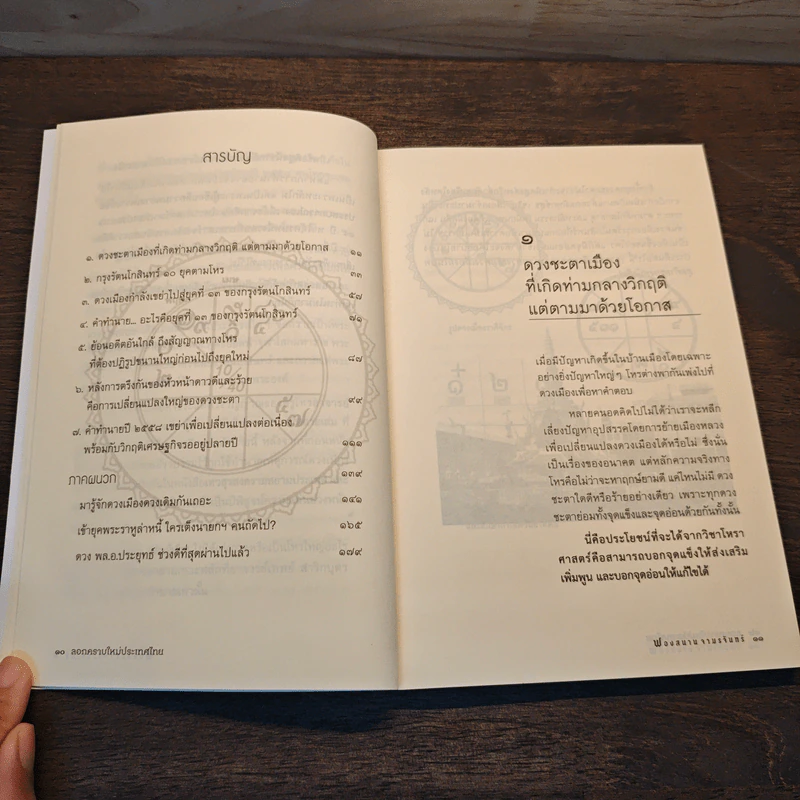 สารบัญ
๑. ดวงชะตาเมืองที่เกิดท่ามกลางวิกฤติ แต่ตามมาด้วยโอกาส ๑๑
๒. กรุงรัตนโกสินทร์ ๑๐ ยุคตามโหร ๓๓
๓. ดวงเมืองกำลังเขย่าไปสู่ยุคที่ ๑๓ ของกรุงรัตนโกสินทร์ ๕๗
๔. คำทำนาย... อะไรคือยุคที่ ๑๓ ของกรุงรัตนโกสินทร์ ๗๑
๕. ย้อนอดีตอันใกล้ ถึงสัญญาณทางโหร
ที่ต้องปฏิรูปขนานใหญ่ก่อนไปถึงยุคใหม่ ๘๗
๖. หลังการตรึงกันของหัวหน้าดาวดีและร้าย
คือการเปลี่ยนแปลงใหญ่ของดวงชะตา ๙๙
๗. คำทำนายปี ๒๕๕๘ เขย่าเพื่อเปลี่ยนแปลงต่อเนื่อง
พร้อมกับวิกฤติเศรษฐกิจรออยู่ปลายปี ๑๑๑
ภาคผนวก ๑๓๙
มารู้จักดวงเมืองดวงเดิมกันเถอะ ๑๔๑
เข้ายุคพระราหูล่าหนี้ ใครเต็งนายกฯ คนถัดไป? ๑๖๕
ดวง พล.อ.ประยุทธ์ ช่วงดีที่สุดผ่านไปแล้ว ๑๗๙
๑๐ ลอกคราบใหม่ประเทศไทย
๑
ดวงชะตาเมือง
ที่เกิดท่ามกลางวิกฤติ
แต่ตามมาด้วยโอกาส
เมื่อมีปัญหาเกิดขึ้นในบ้านเมืองโดยเฉพาะ
อย่างยิ่งปัญหาใหญ่ๆ โหรต่างพากันเพ่งไปที่
ดวงเมืองเพื่อหาคำตอบ
หลายคนอดคิดไปไม่ได้ว่าเราจะหลีก
เลี่ยงปัญหาอุปสรรคโดยการย้ายเมืองหลวง
เพื่อเปลี่ยนแปลงดวงเมืองได้หรือไม่ ซึ่งนั่น
เป็นเรื่องของอนาคต แต่หลักความจริงทาง
โหรคือไม่ว่าจะหาฤกษ์ยามดี แค่ไหนไม่มี ดวง
ชะตาใดดีหรือร้ายอย่างเดียว เพราะทุกดวง
ชะตาย่อมทั้งจุดแข็งและจุดอ่อนด้วยกันทั้งนั้น
นี่คือประโยชน์ที่จะได้จากวิชาโหรา
ศาสตร์คือสามารถบอกจุดแข็งให้ส่งเสริม
เพิ่มพูน และบอกจุดอ่อนให้แก้ไขได้
ฟองสนาน จามรจันทร์ ๑๑